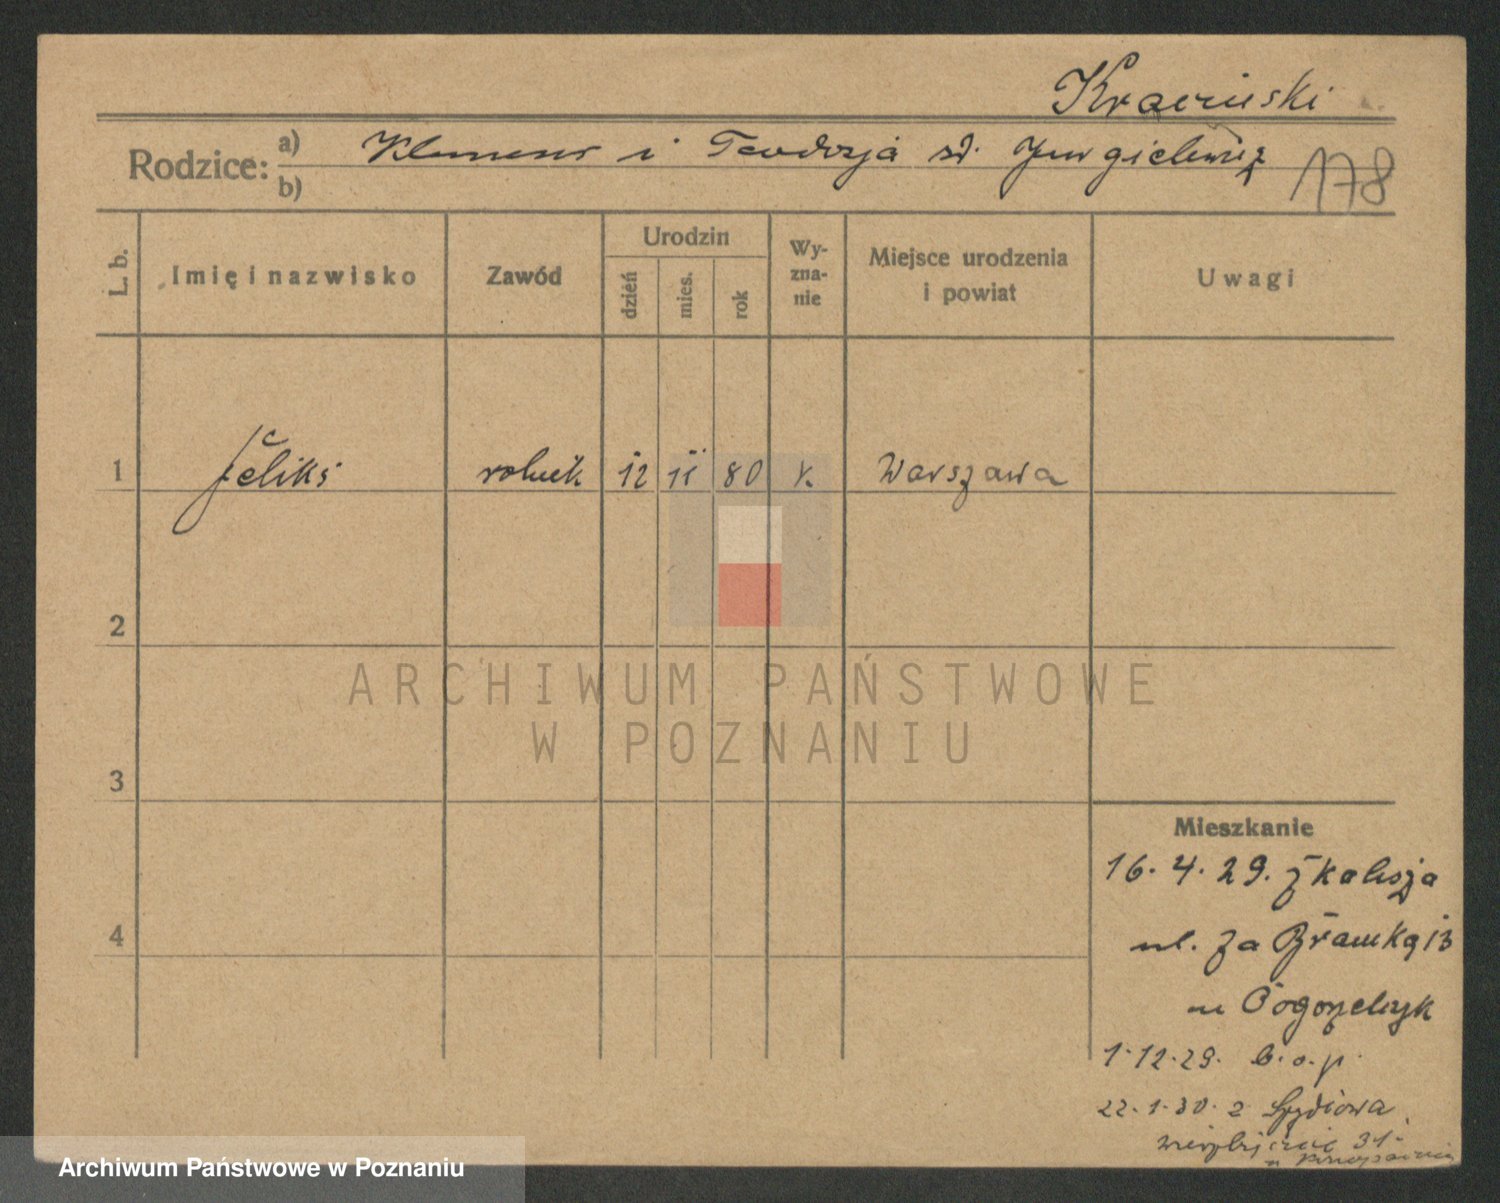 Kraciuski
Rodzice: a) Klemens i Teodozja zd. Jurgielewicz
b)
178
L. b.
Imię i nazwisko
Zawód
Urodzin
dzień
mies.
rok
Wy-
zna-
nie
Miejsce urodzenia
i powiat
Uwagi
1 Feliks rolnik 12 11 80 k. Warszawa
2
3
4
ARCHIWUM PAŃSTWOWE
W POZNANIU
Mieszkanie
16. 4. 29. z Kalisza
ul. Za Bramką 13
1.12.29. b.o.p.
22.1.30. z
31.
Archiwum Państwowe w Poznaniu